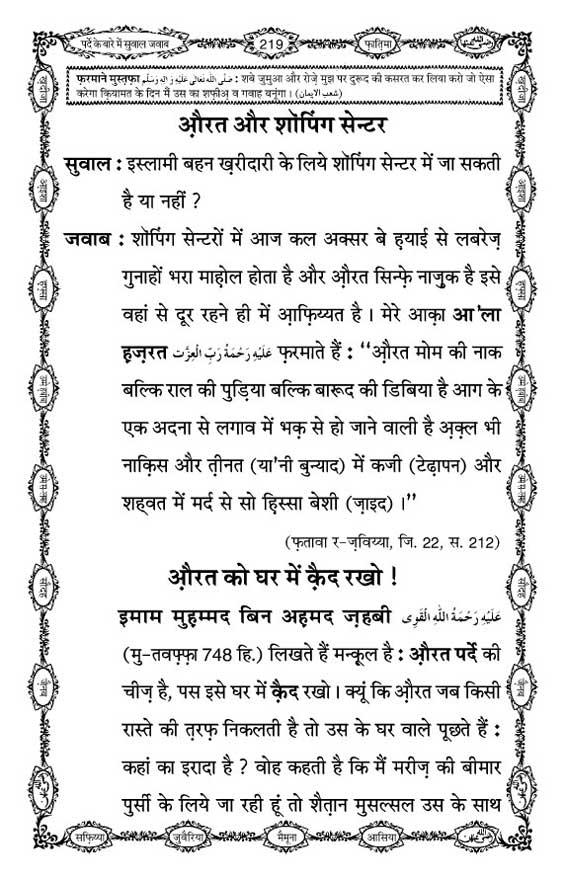 पर्दे के बारे में सुवाल जवाब
219
फ़ातिमा
फ़रमाने मुस्त़फ़ा صَلَّى اللهُ تَعَالٰى عَلَيْهِ وَاٰلِهٖ وَسَلَّم : शबे जुमुआ और रोज़े मुझ पर दुरूद की कसरत कर लिया करो जो ऐसा
करेगा क़ियामत के दिन मैं उस का शफ़ीअ़ व गवाह बनूंगा। (شعب الایمان)
औ़रत और शॉपिंग सेन्टर
सुवाल : इस्लामी बहन ख़रीदारी के लिये शॉपिंग सेन्टर में जा सकती
है या नहीं ?
जवाब : शॉपिंग सेन्टरों में आज कल अक्सर बे ह़याई से लबरेज़
गुनाहों भरा माह़ोल होता है और औ़रत सिन्फ़े नाज़ुक है इसे
वहां से दूर रहने ही में आ़फ़िय्यत है। मेरे आक़ा आ'ला
ह़ज़रत عَلَيْهِ رَحْمَةُ رَبِّ الْعِزَّت फ़रमाते हैं : ‘‘औ़रत मोम की नाक
बल्कि राल की पुड़िया बल्कि बारूद की डिबिया है आग के
एक अदना से लगाव में भक़ से हो जाने वाली है अ़क़्ल भी
नाक़िस और त़ीनत (या'नी बुन्याद) में कजी (टेढ़ापन) और
शह्वत में मर्द से सो ह़िस्सा बेशी (ज़ाइद)।’’
(फ़तावा र-ज़विय्या, जि. 22, स. 212)
औ़रत को घर में क़ैद रखो !
इमाम मुह़म्मद बिन अह़मद ज़हबी عَلَيْهِ رَحْمَةُ اللهِ الْقَوِى
(मु-तवफ़्फ़ा 748 हि.) लिखते हैं मन्क़ूल है : औ़रत पर्दे की
चीज़ है, पस इसे घर में क़ैद रखो। क्यूं कि औ़रत जब किसी
रास्ते की त़रफ़ निकलती है तो उस के घर वाले पूछते हैं :
कहां का इरादा है ? वोह कहती है कि मैं मरीज़ की बीमार
पुर्सी के लिये जा रही हूं तो शैत़ान मुसल्सल उस के साथ
सफ़िय्या
जुवैरिया
मैमूना
आसिया